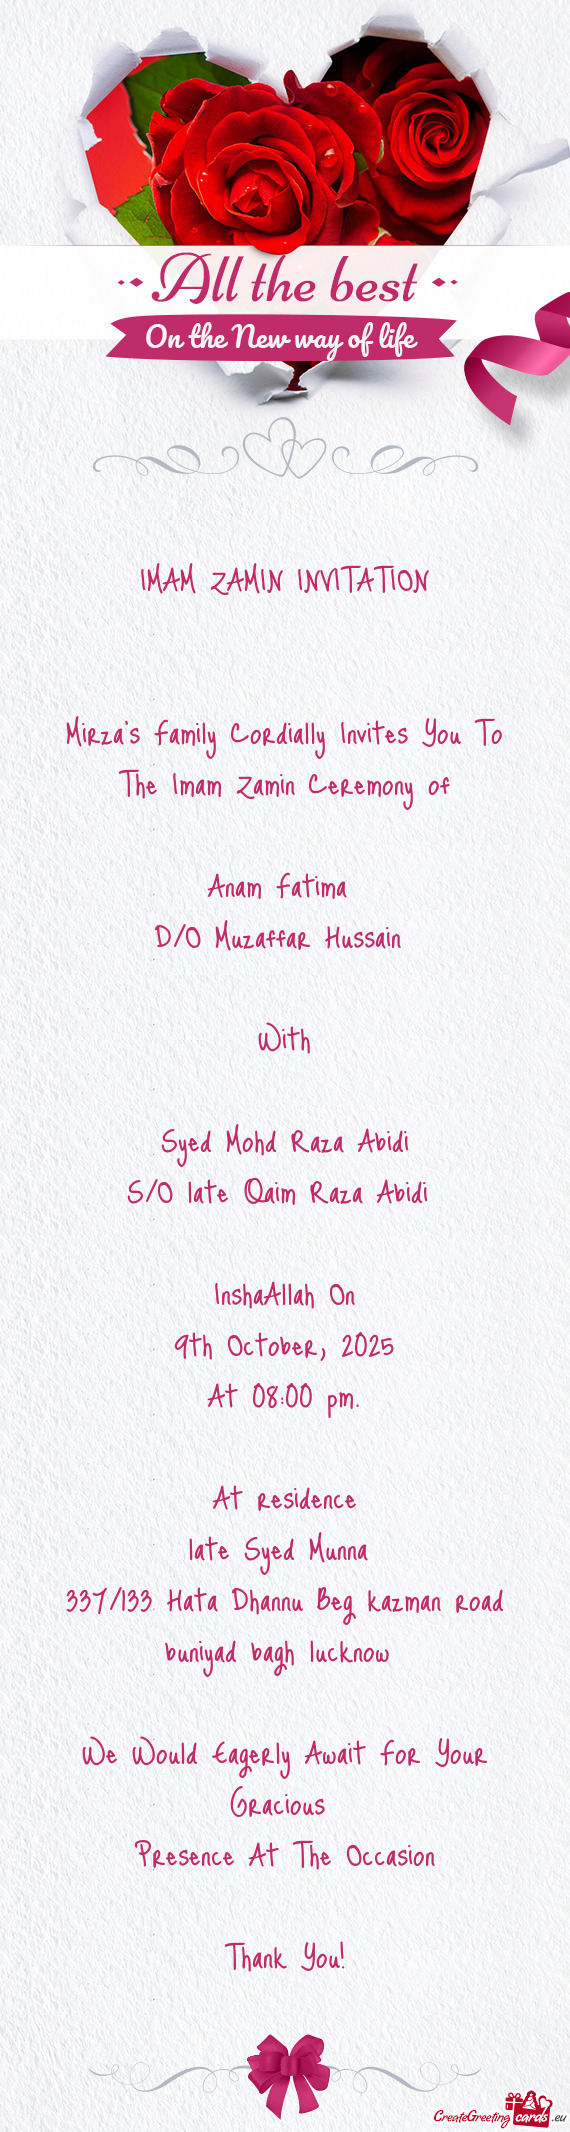 All the best
On the New way of life
IMAM ZAMIN INVITATION
Mirza's family Cordially Invites You To
The Imam Zamin Ceremony of
Anam fatima
D/O Muzaffar Hussain
With
Syed Mohd Raza Abidi
S/O late Qaim Raza Abidi
InshaAllah On
9th October, 2025
At 08:00 pm.
At residence
late Syed Munna
337/133 Hata Dhannu Beg kazman road
buniyad bagh lucknow
We Would Eagerly Await For Your
Gracious
Presence At The Occasion
Thank You!
CreateGreetingcards.eu